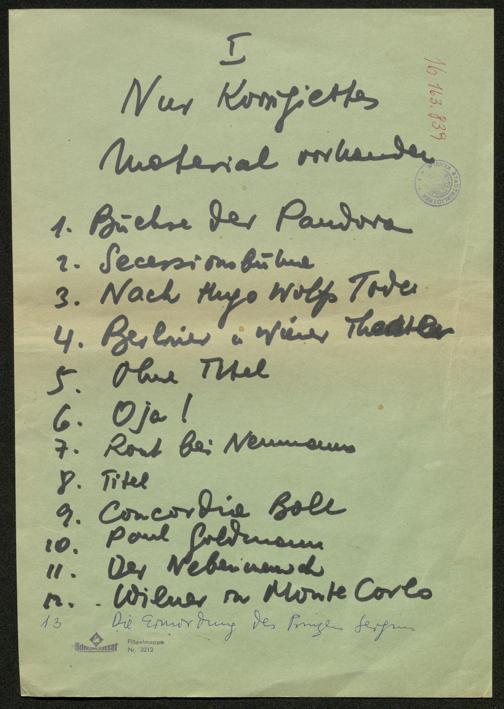 I
16 163.839
Nur Korrigiertes
Material vorhanden
1. Büchse der Pandora
2. Secessionsbühne
3. Nach Hugo Wolfs Tode
4. Berliner u Wiener Theater
5. Ohne Titel
6. Oja!
7. Rout bei Neumanns
8. Titel
9. Concordia Ball
10. Paul Goldmann
11. Der Nebenmensch
12. Wiener in Monte Carlo
13 Die Ermordung des Prinzen Sergius
Filzeinmappe
Nr. 3212